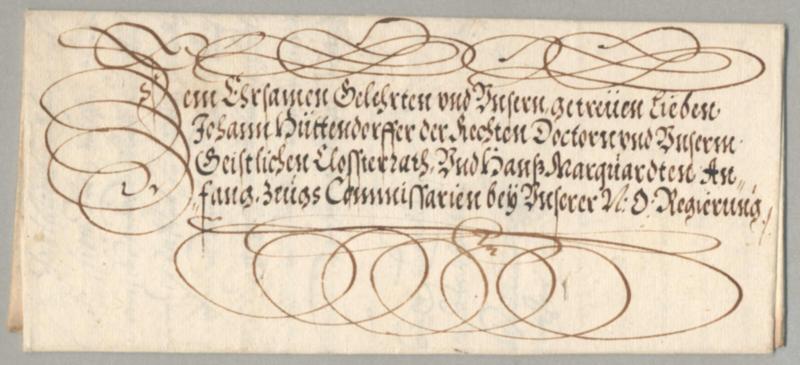 Dem Ehrsamen Gelehrten vnd Vnsern getreüen Lieben
Johann Hüttendorffer der Rechten Doctorn vnd Vnserm
Geistlichen Closterrath, Vnd Hanß Marquardten An=
fang, Zeugs Commissarien bey Vnserer N: O: Regierung